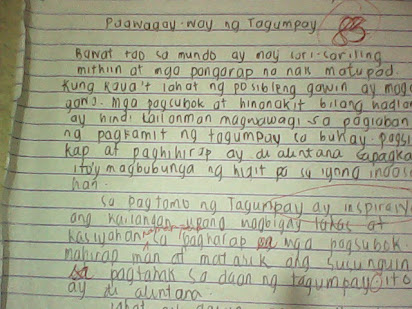 Pagwagay-way ng Tagumpay 85
Bawat tao sa mundo ay may sari-sariling
mithiin at mga pangarap na nais matupad.
Kung kaya't lahat ng posibleng gawin ay
gawi. Mga pagsubok at hinanakit bilang
ay hindi kailanman magwawagi sa
ng pagkamit ng tagumpay sa buhay.
kap at paghihirap ay di alintana sapagka
ito'y magbubunga ng higit pa sa iyong
han.
Sa pagtamo ng Tagumpay ay
ang kailangan upang magbigay lakas at
kasiyahan sa pagharap sa mga pagsubok
mahirap man at matarik ang
sa pagtahak sa daan ng tagumpay ito
ay di alintana.